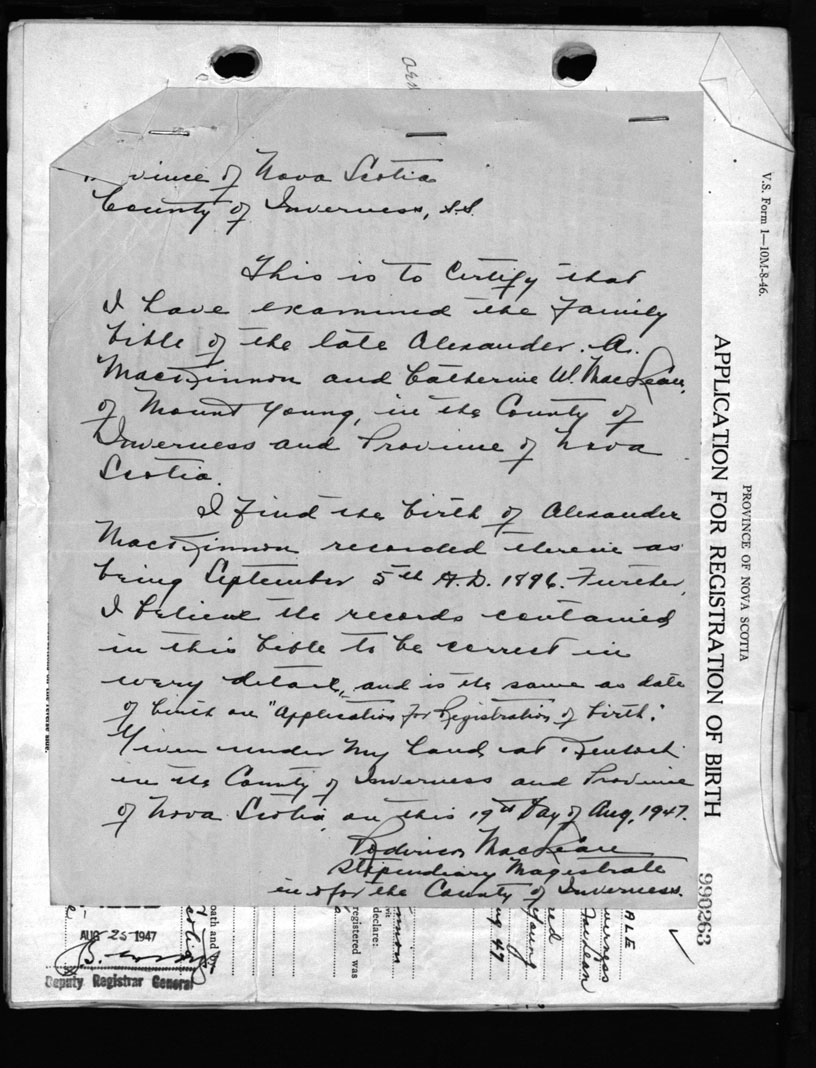 Province of Nova Scotia
County of Inverness, S.S.
This is to Certify that
I have examined the Family
bible of the late Alexander. A.
MacKinnon and Catherine W. MacLean,
of Mount Young, in the County of
Inverness and Province of Nova
Scotia.
I find the birth of Alexander
MacKinnon recorded therein as
being September 5th A.D. 1896. Further,
I believe the records contained
in this bible to be correct in
every detail, and is the same as date
of birth on "Application for Registration of birth".
Given under my hand at
in the County of Inverness and Province
of Nova Scotia, on this 19th Day of Aug, 1947.
MacLean
Stipendiary Magistrate
in & for the County of Inverness.
V.S. Form 1—10M-8-46.
PROVINCE OF NOVA SCOTIA
APPLICATION FOR REGISTRATION OF BIRTH
990263
on the reverse side.
ALE
Lean
red
Young
ug 47
nnon
declare:
registered was
oath and
AUG 25 1947
Deputy Registrar General